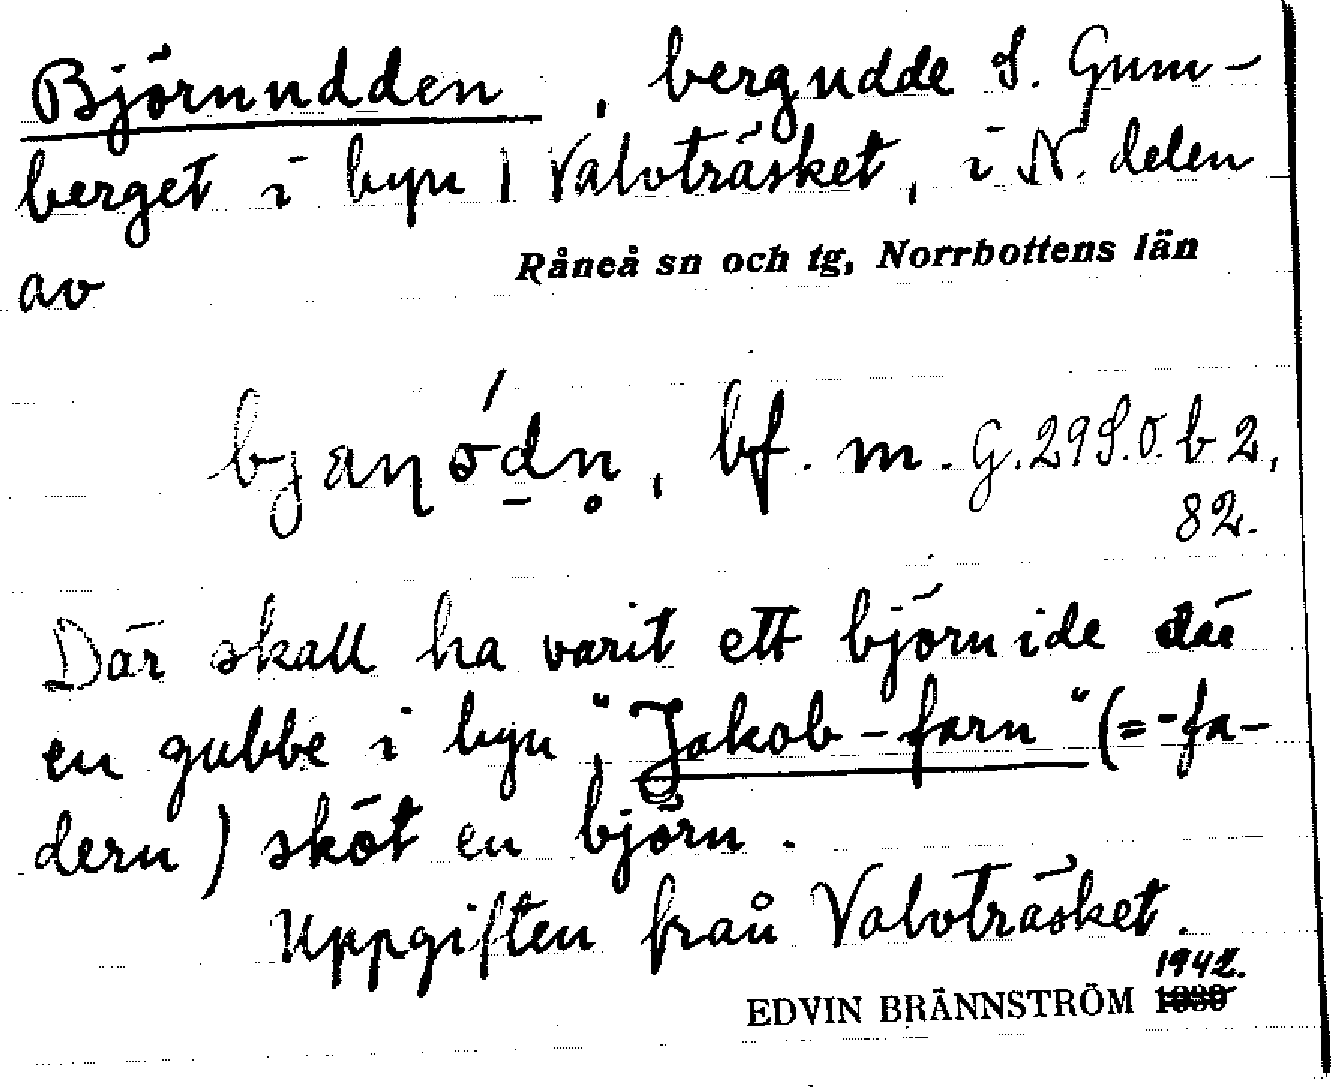 Björnudden, bergudde S. Gum-
berget i byn Valvträsket, i N. delen
av
Råneå sn och tg, Norrbottens län
bjaŋó̱dn̥, bf. m. G. 29 S.O. b 2,
82.
Där skall ha varit ett björnide där
en gubbe i byn, "Jakob-farn" (=-fa-
dern) sköt en björn.
Uppgiften från Valvträsket.
1942.
EDVIN BRÄNNSTRÖM 1939